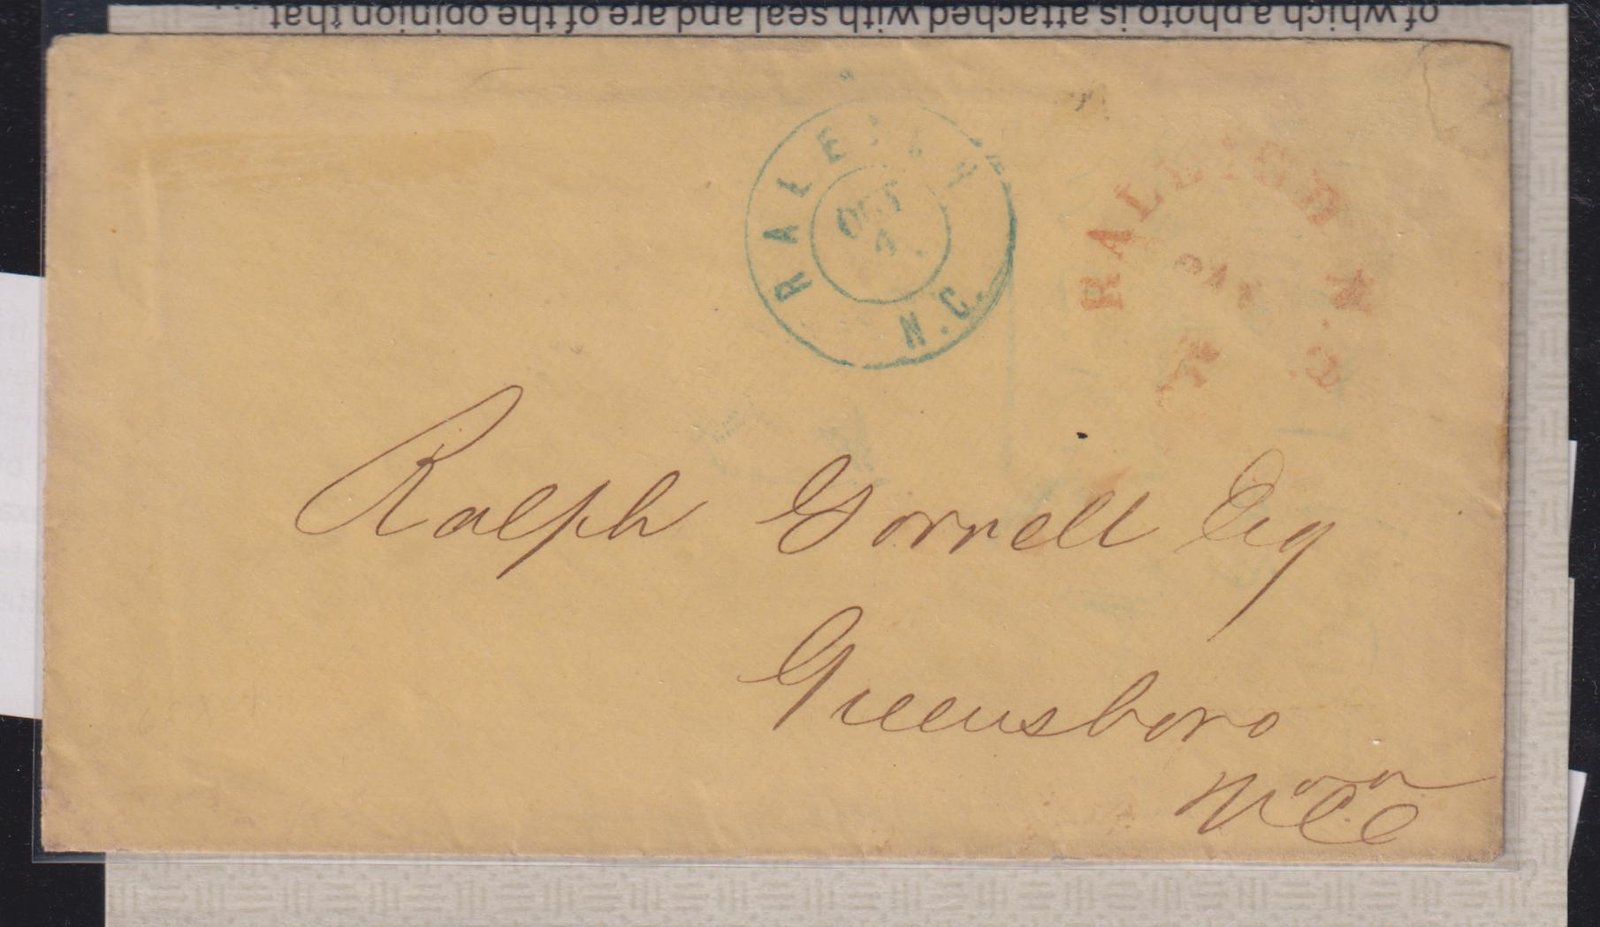 of which a photo is attached with seal and are of the opinion that
RALEIGH
OCT
4
N.C.
RALEIGH
PAI
N.C.
Ralph Gorrell Esq
Greensboro